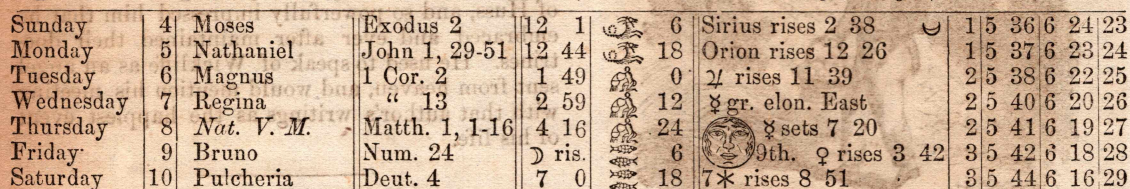 Sunday 4 Moses Exodus 2 12 1 6 Sirius rises 2 38 1 5 36 6 24 23
Monday 5 Nathaniel John 1, 29-51 12 44 18 Orion rises 12 26 1 5 37 6 23 24
Tuesday 6 Magnus 1 Cor. 2 1 49 0 ♃ rises 11 39 2 5 38 6 22 25
Wednesday 7 Regina “ 13 2 59 12 ☿ gr. elon. East 2 5 40 6 20 26
Thursday 8 Nat. V. M. Matth. 1, 1-16 4 16 24 ☿ sets 7 20 2 5 41 6 19 27
Friday 9 Bruno Num. 24 ☽ ris. 6 9th. ♀ rises 3 42 3 5 42 6 18 28
Saturday 10 Pulcheria Deut. 4 7 0 18 7* rises 8 51 3 5 44 6 16 29